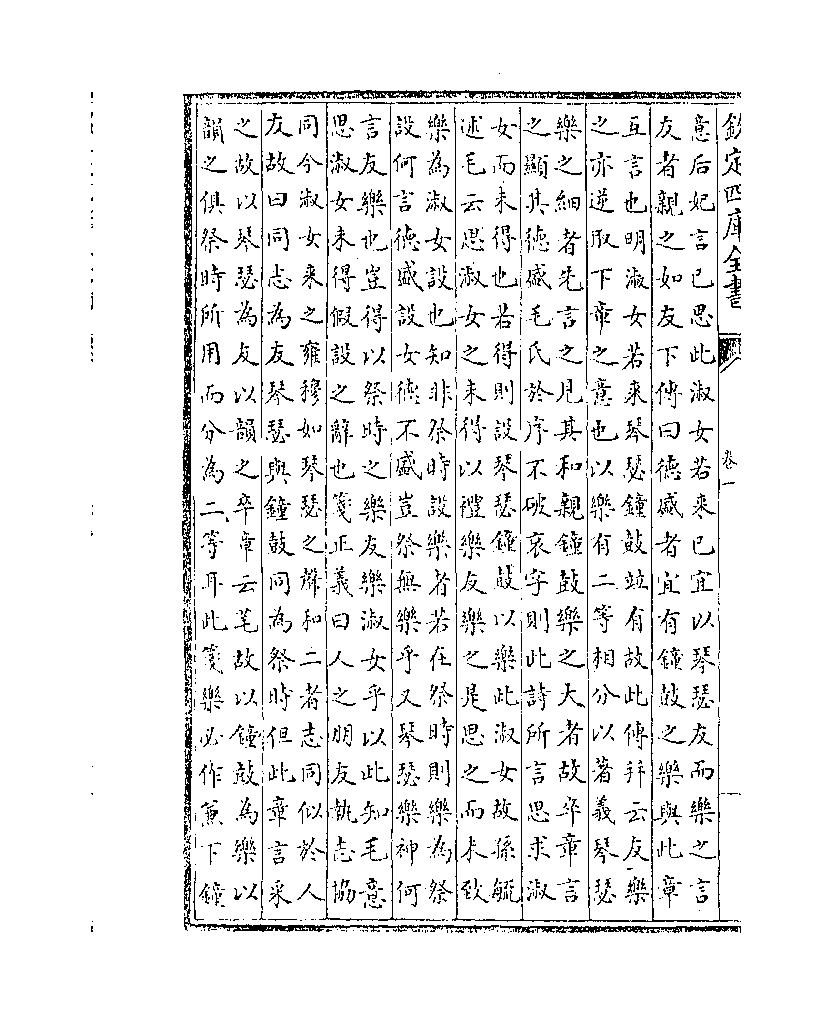 欽定四庫全書
卷一
意后妃言已思此淑女若来已宜以琴瑟友而樂之言
友者親之如友下傳曰德盛者宜有鐘鼓之樂與此章
互言也明淑女若来琴瑟鐘鼓竝有故此傳并云友樂
之亦逆取下章之意也以樂有二等相分以著義琴瑟
樂之細者先言之見其和親鐘鼓樂之大者故卒章言
之顯其德盛毛氏於序不破哀字則此詩所言思求淑
女而未得也若得則設琴瑟鐘鼓以樂此淑女故孫毓
述毛云思淑女之未得以禮樂友樂之是思之而未致
樂為淑女設也知非祭時設樂者若在祭時則樂為祭
設何言德盛設女德不盛豈祭無樂乎又琴瑟樂神何
言友樂也豈得以祭時之樂友樂淑女乎以此知毛意
思淑女未得假設之辭也箋正義曰人之朋友執志協
同今淑女来之雍穆如琴瑟之聲和二者志同似於人
友故曰同志為友琴瑟與鐘鼓同為祭時但此章言采
之故以琴瑟為友以韻之卒章云芼故以鐘鼓為樂以
韻之俱祭時所用而分為二等耳此箋樂必作兼下鐘